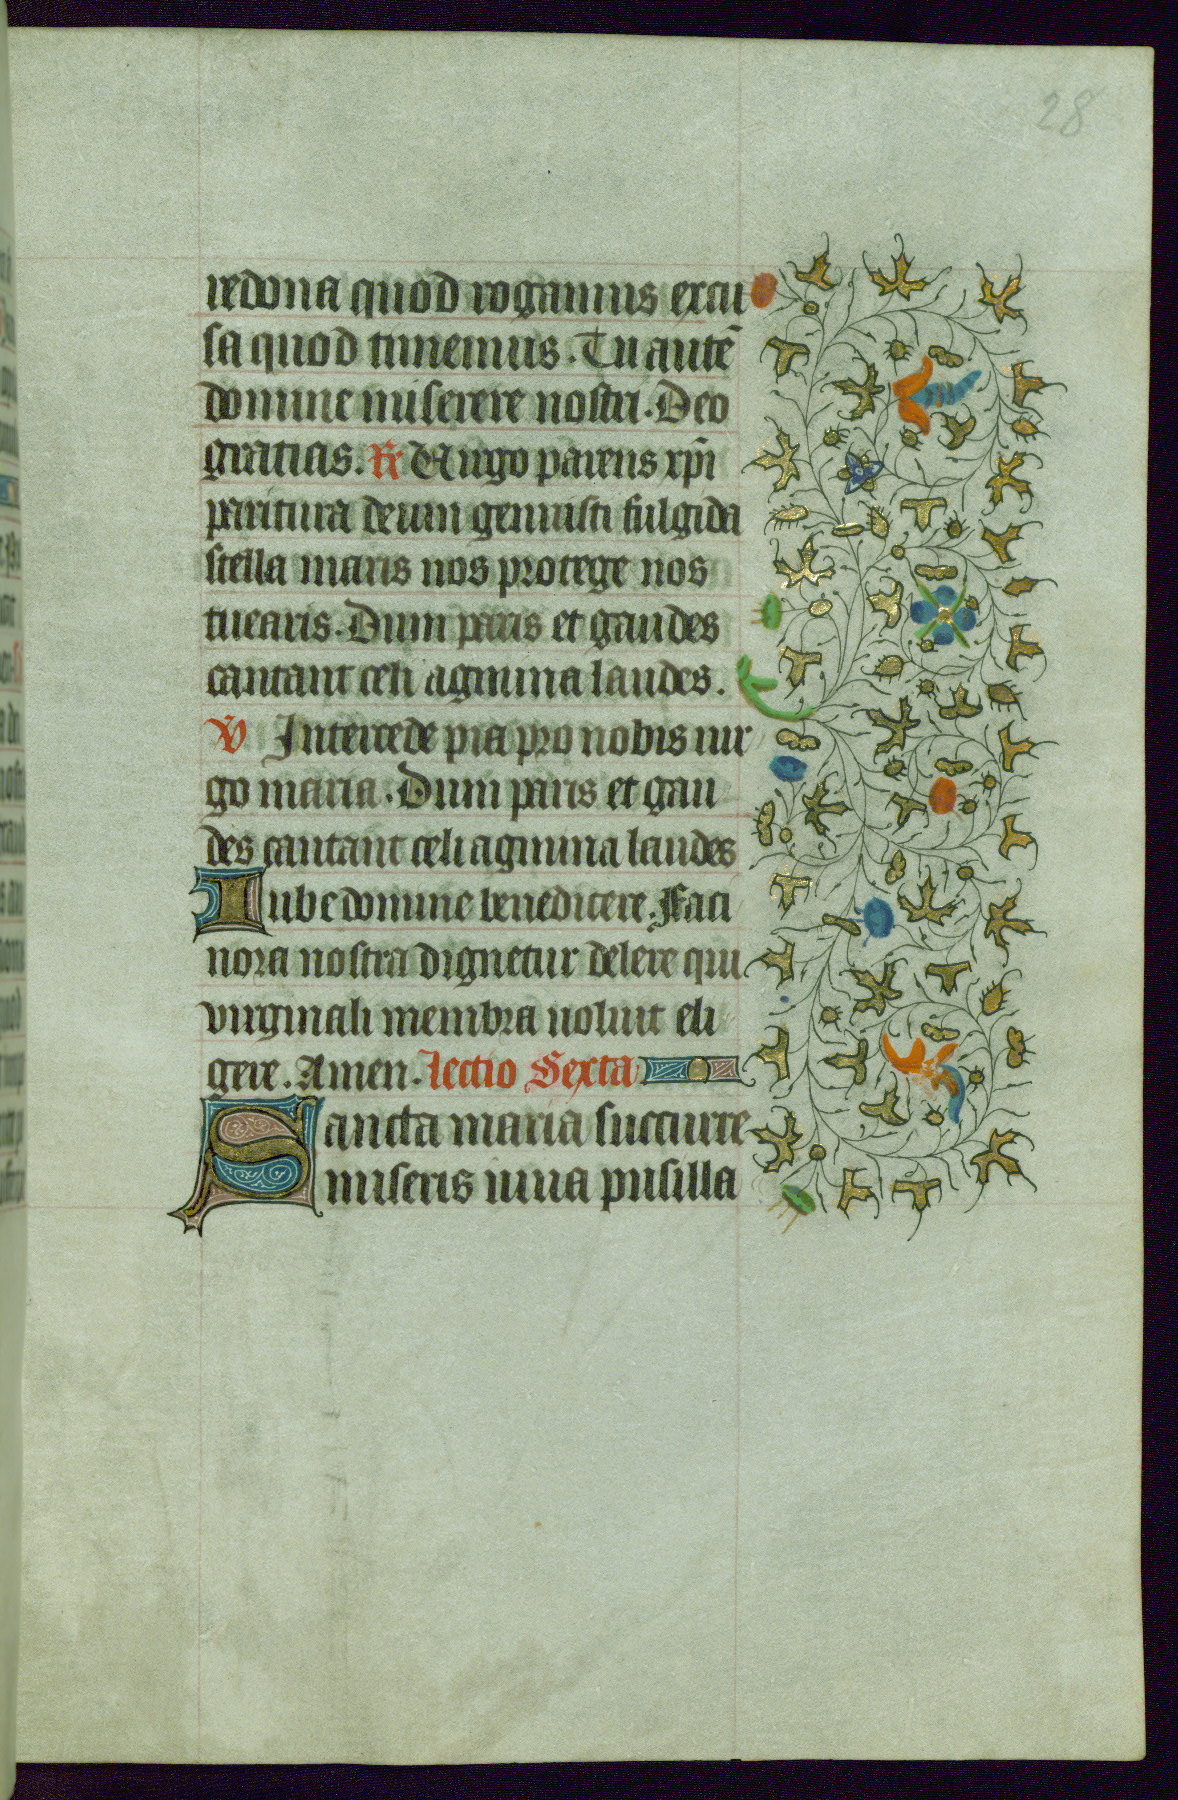 28
redona quod rogamus excu
sa quod timemus. Tu autē
domine miserere nostri. Deo
gratias. R̄ Virgo parens xp̄i
paritura deum genuisti fulgida
stella maris nos protege nos
tuearis. Dum paris et gaudes
cantant celi agmina laudes.
V̄ Intercede pia pro nobis uir
go maria. Dum paris et gau
des cantant celi agmina laudes
Iube domine benedicere. Faci
nora nostra dignetur delere qui
virginali membra uoluit eli
gere. Amen. lectio Sexta
Sancta maria succurre
miseris iuua pusilla